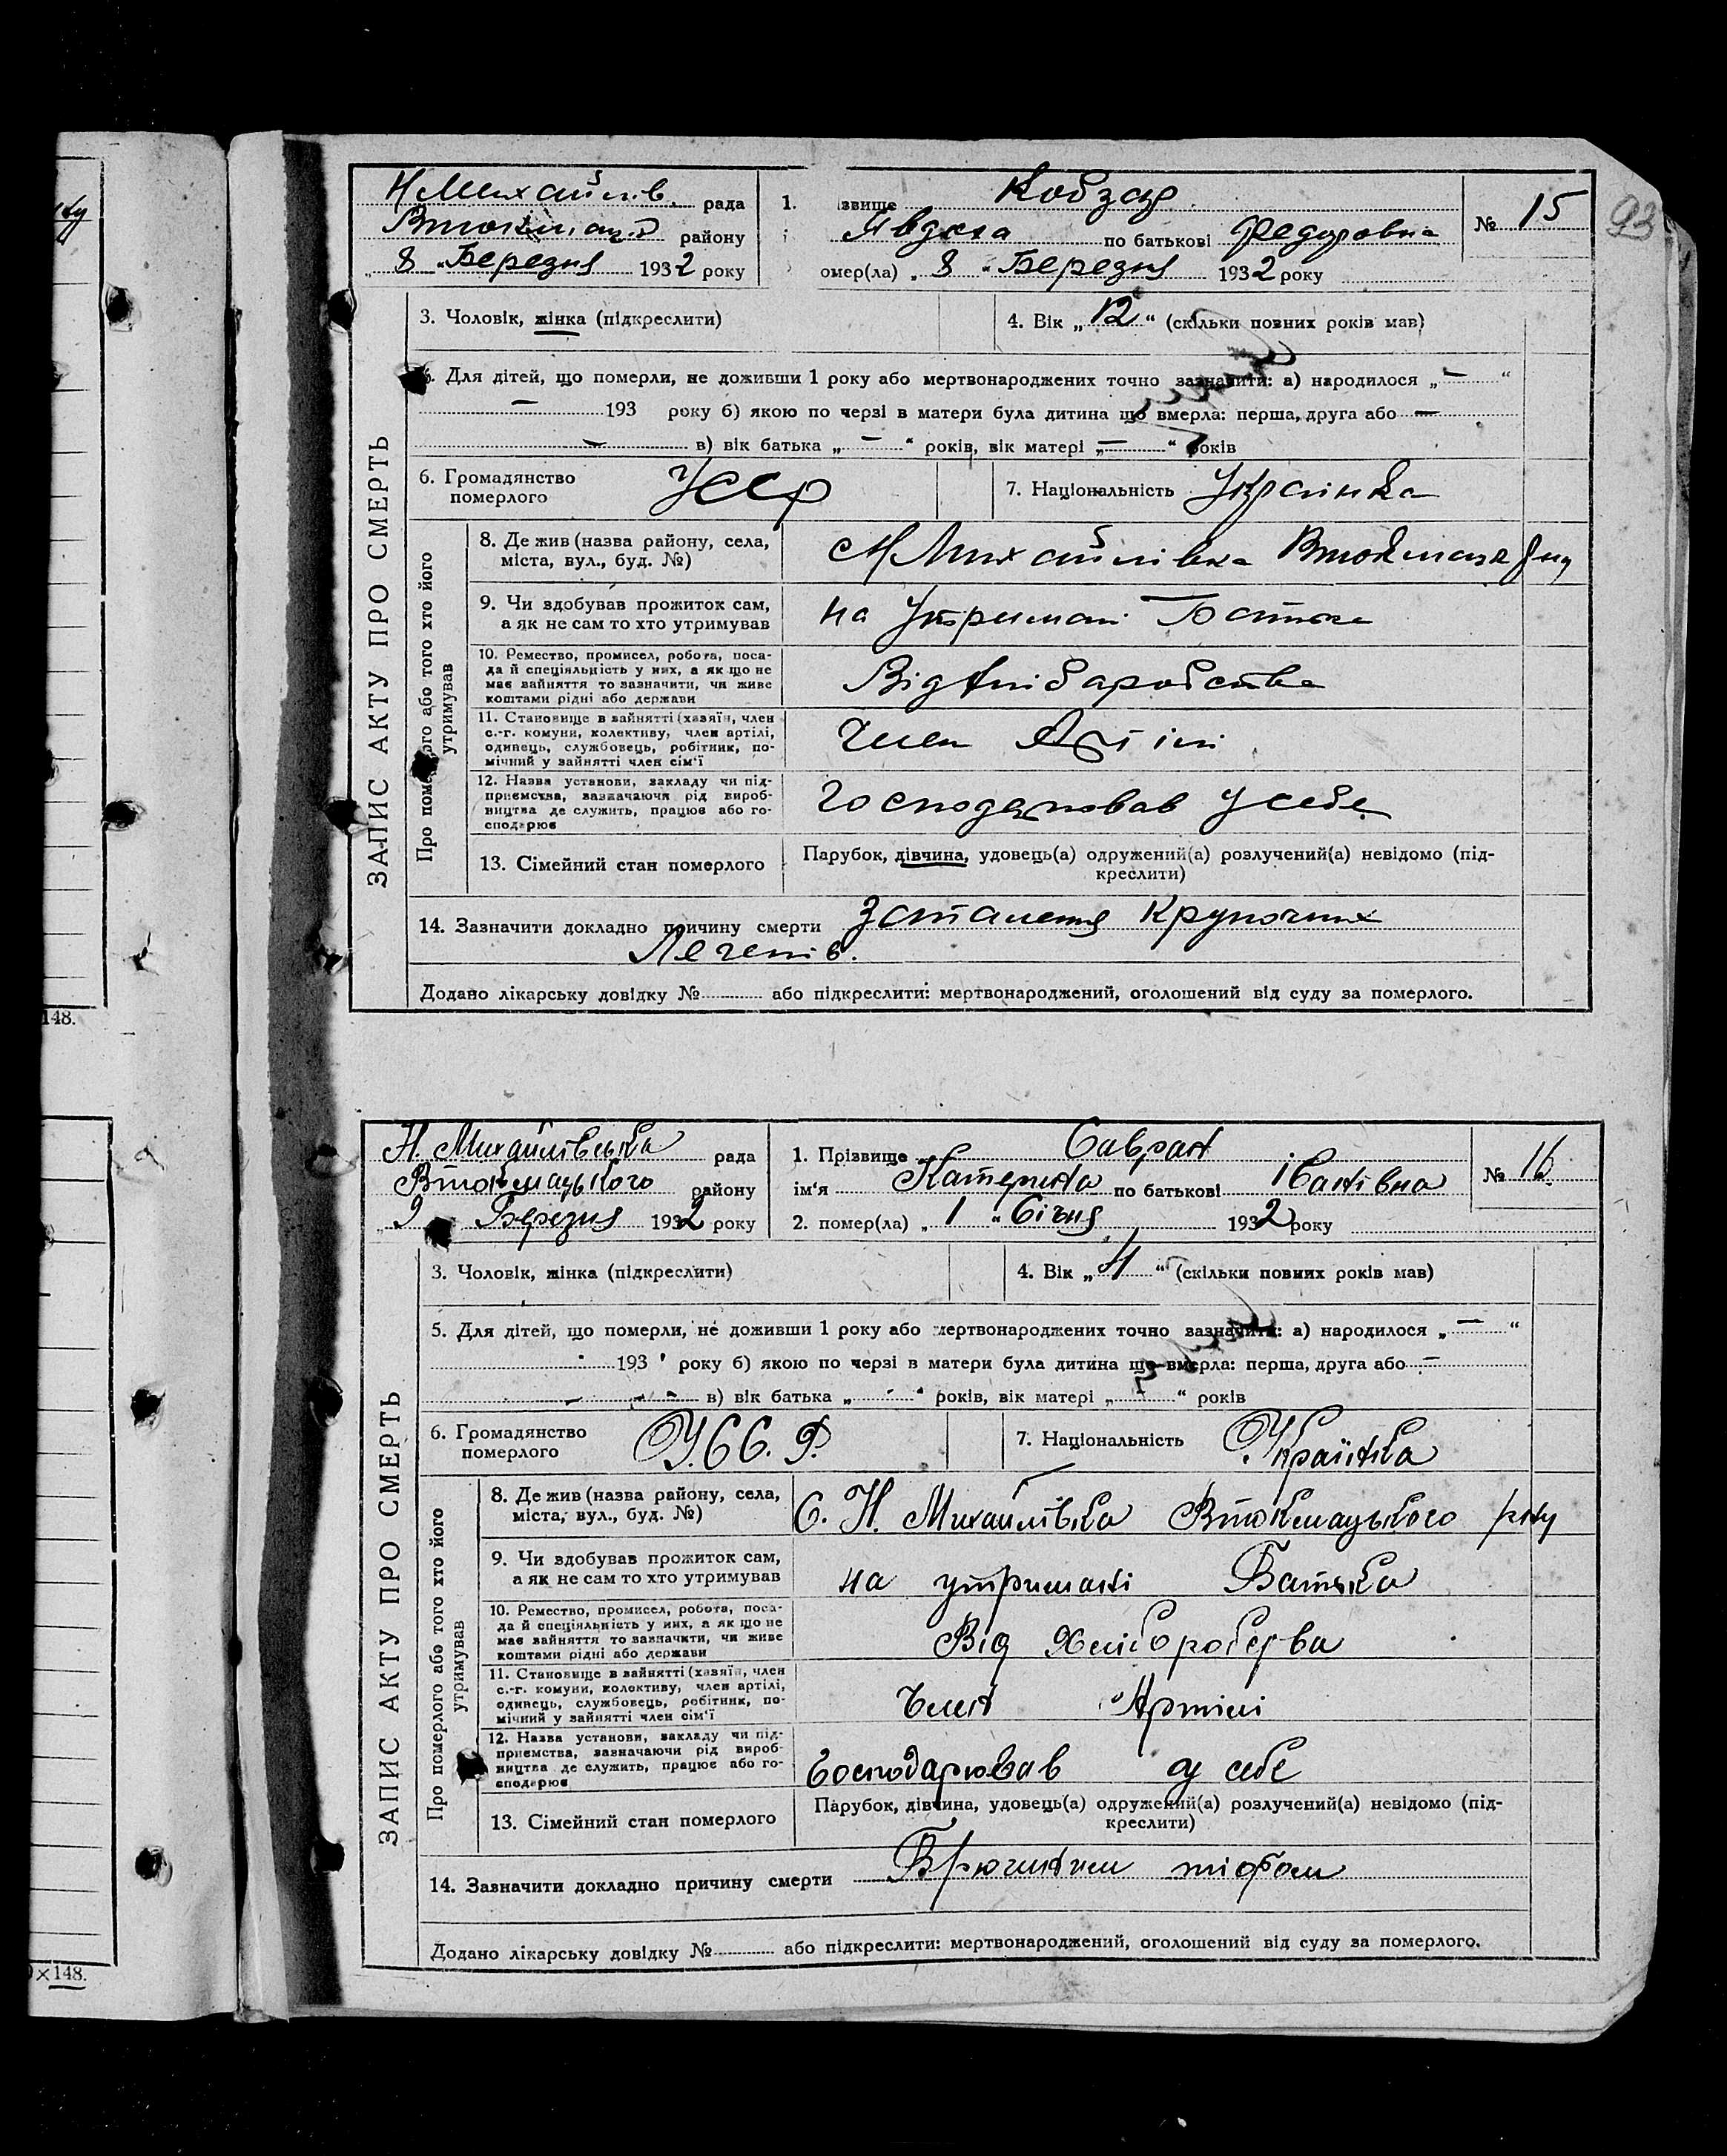 93
Н Михайлів. рада
району
„ 8 „ Березня 1932 року
1. ізвище Кобзар
Явдоха по батькові Федоровна
омер(ла) „ 8 „ Березня 1932 року
№ 15
ЗАПИС АКТУ ПРО СМЕРТЬ
3. Чоловік, жінка (підкреслити)
4. Вік „ 12 “ (скільки повних років мав)
Для дітей, що померли, не доживши 1 року або мертвонароджених точно зазначити: а) народилося „ — “
— 193 року б) якою по черзі в матери була дитина що вмерла: перша, друга або —
— в) вік батька „ — “ років, вік матері „ — “ років
6. Громадянство
померлого
Усср
7. Національність Українка
Про померлого або того хто його
утримував
8. Де жив (назва району, села,
міста, вул., буд. №)
Н Михайлівка
9. Чи здобував прожиток сам,
а як не сам то хто утримував
на утримані Батька
10. Ремество, промисел, робота, поса-
да й спеціяльність у них, а як що не
має зайняття то зазначити, чи живе
коштами рідні або держави
Від хліборобства
11. Становище в зайнятті (хазяїн, член
с.-г. комуни, колективу, член артілі,
одинець, службовець, робітник, по-
мічний у зайнятті член сім'ї
Член Артілі
12. Назва установи, закладу чи під-
приємства, зазначаючи рід вироб-
ництва де служить, працює або го-
сподарює
Господарював у себе
13. Сімейний стан померлого
Парубок, дівчина, удовець(а) одружений(а) розлучений(а) невідомо (під-
креслити)
14. Зазначити докладно причину смерти Запалення Крупочних
Легенів.
Додано лікарську довідку № або підкреслити: мертвонароджений, оголошений від суду за померлого.
148.
Н. Михайлівська рада
Втокмацького району
„ 9 „ Березня 1932 року
1. Прізвище Савран
ім'я Катерина по батькові іванівна
2. помер(ла) „ 1 „ Січня 1932 року
№ 16.
ЗАПИС АКТУ ПРО СМЕРТЬ
3. Чоловік, жінка (підкреслити)
4. Вік „ 4 “ (скільки повних років мав)
5. Для дітей, що померли, не доживши 1 року або мертвонароджених точно зазначити: а) народилося „ — “
193 року б) якою по черзі в матери була дитина що вмерла: перша, друга або —
в) вік батька „ - “ років, вік матері „ - “ років
6. Громадянство
померлого
У.С.С.Р.
7. Національність Українка
Про померлого або того хто його
утримував
8. Де жив (назва району, села,
міста, вул., буд. №)
С. Н. Михайлівка Втокмацького р-ну
9. Чи здобував прожиток сам,
а як не сам то хто утримував
на утримані Батька
10. Ремество, промисел, робота, поса-
да й спеціяльність у них, а як що не
має зайняття то зазначити, чи живе
коштами рідні або держави
Від Хліборобства
11. Становище в зайнятті (хазяїн, член
с.-г. комуни, колективу, член артілі,
одинець, службовець, робітник, по-
мічний у зайнятті член сім'ї
Член Артілі
12. Назва установи, закладу чи під-
приємства, зазначаючи рід вироб-
ництва де служить, працює або го-
сподарює
Господарював у себе
13. Сімейний стан померлого
Парубок, дівчина, удовець(а) одружений(а) розлучений(а) невідомо (під-
креслити)
14. Зазначити докладно причину смерти Брюшним тіфом
Додано лікарську довідку № або підкреслити: мертвонароджений, оголошений від суду за померлого.
×148.